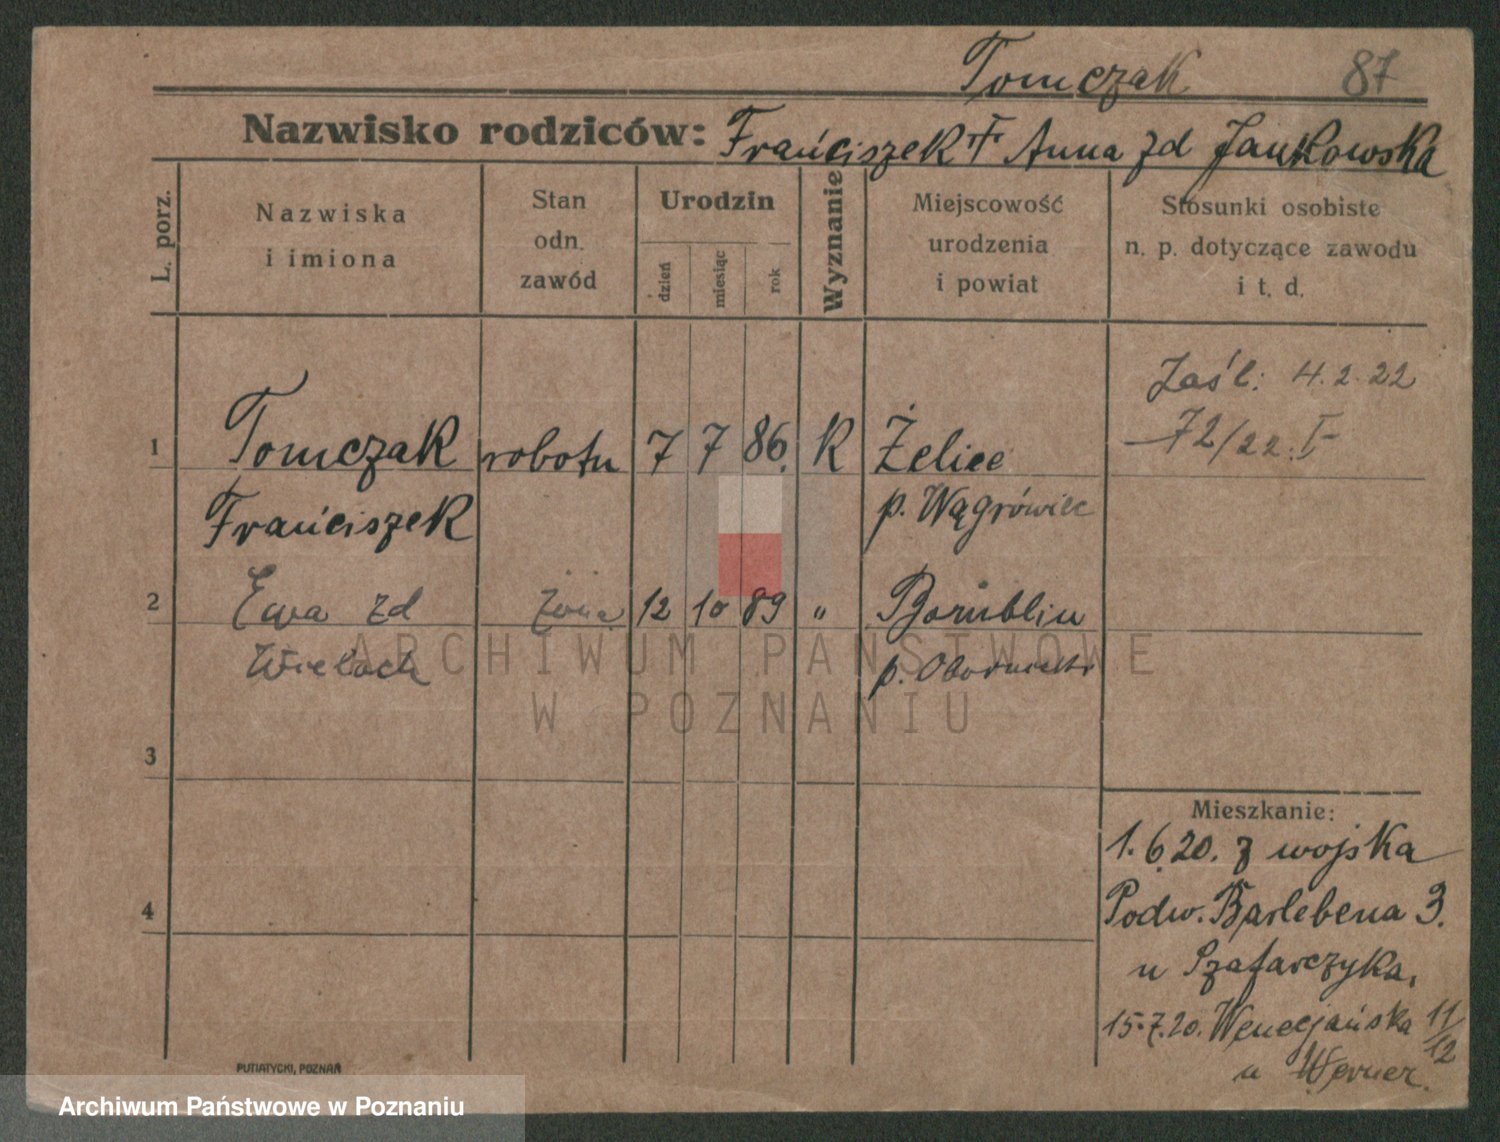 Tomczak 87
Nazwisko rodziców: Frańciszek Anna zd Jankowska
L. porz.
Nazwiska
i imiona
Stan
odn.
zawód
Urodzin
dzień
miesiąc
rok
Wyznanie
Miejscowość
urodzenia
i powiat
Stosunki osobiste
n. p. dotyczące zawodu
i t. d.
Zaśl: 4.2.22
72/22 I
1 Tomczak robotn 7 7 86. K Żelice
Frańciszek p. Wągrówiec
2 Ewa zd żona 12 10 89 " 
Wielach p.
3
4
Mieszkanie:
1.6.20. z wojska
Podw. Barlebena 3.
u Szafarczyka.
15.7.20. Wenecjańska 11/12
u Werner.
PUTIATYCKI, POZNAŃ
ARCHIWUM PAŃSTWOWE
W POZNANIU
Archiwum Państwowe w Poznaniu